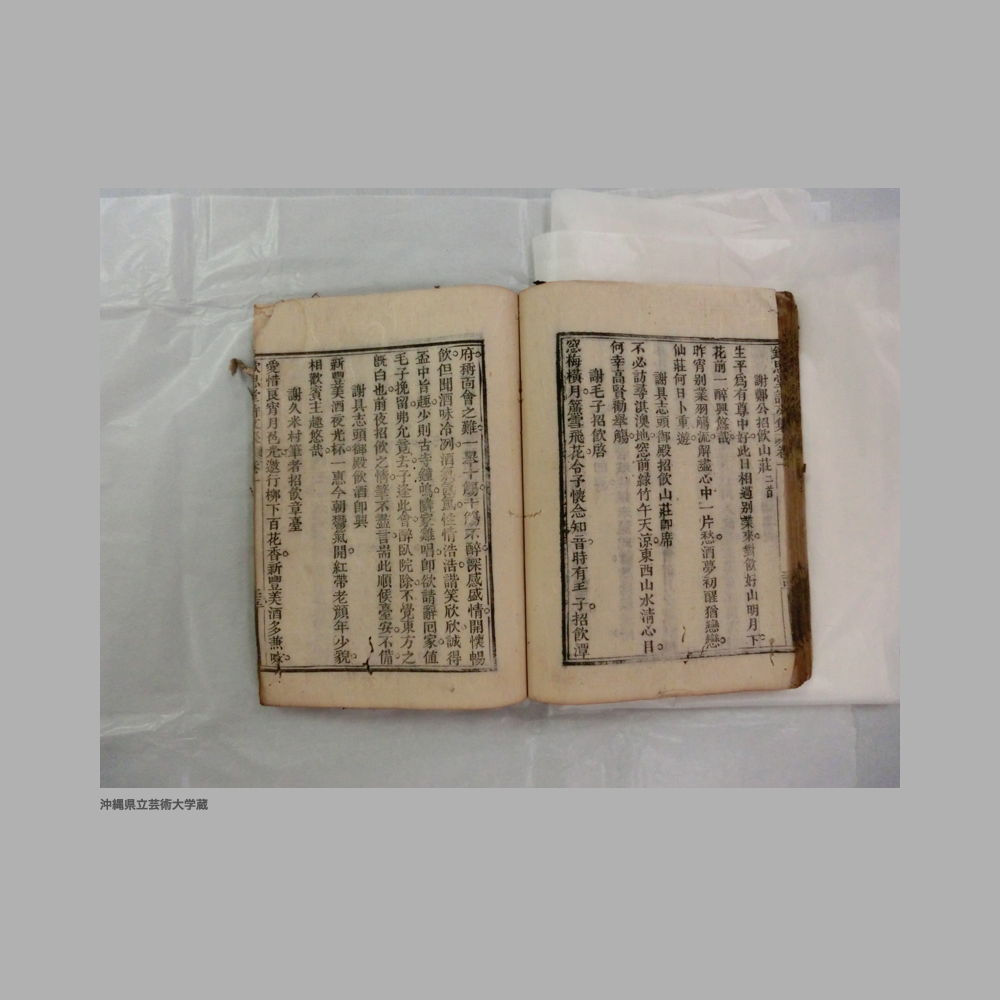 謝鄭公招飲山莊二首
生平爲有尊中好此日相過別業來歡飲好山明月下
花前一醉興悠哉
昨宵別業羽觴流解盡心中一片愁酒夢初醒猶戀戀
仙莊何日卜重遊
謝具志頭御殿招飲山莊卽席
不必訪尋淇澳地窓前緑竹午天凉東西山水清心目
何幸高賢勸擧觴
謝毛子招飲啓
窓梅横月簾雪飛花令予懷念知音時有王子招飲潭
府稱面會之難一擧十觴十觴不醉深感盛情開懷暢
飲但聞酒味冷冽酒氣爲性情浩浩諧笑欣欣誠得
盃中旨趣少則古寺鐘鳴隣家雞唱卽欲請辭回家値
毛子挽留弗允竟去予逢此會醉臥院除不覺東方之
旣白也前夜招飲之情筆不盡言耑此順候臺安不備
謝具志頭御殿飲酒卽興
新豐美酒夜光杯一惠今朝鬱氣開紅帶老顔年少貌
相歡賓主趣悠哉
謝久米村筆者招飲章臺
愛惜良宵月色光邀行柳下百花香新豐美酒多兼
沖縄県立芸術大学蔵